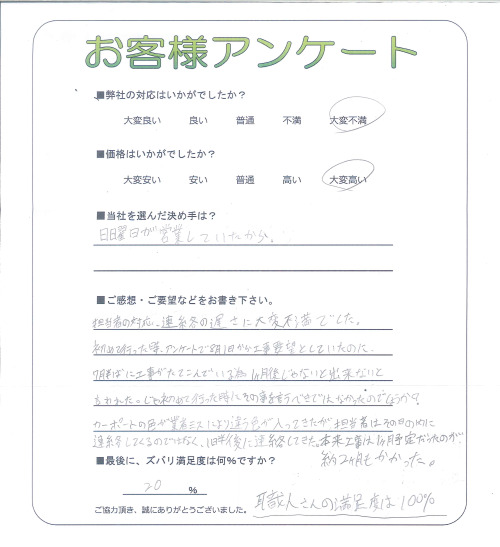 お客様アンケート
■弊社の対応はいかがでしたか？
大変良い 良い 普通 不満 大変不満
■価格はいかがでしたか？
大変安い 安い 普通 高い 大変高い
■当社を選んだ決め手は？
日曜日が営業していたから。
■ご感想・ご要望などをお書き下さい。
担当者の対応、連絡等の遅さに大変不満でした。
初めて行った時、アンケートで8月1日から工事希望としていたのに、
7月半ばに工事がたてこんでいる為1ヶ月後じゃないと出来ないと
言われた。じゃあ初めて行った時にその事を言うべきではなかったのでしょうか？
カーポートの色が業者ミスにより違う色が入ってきたが担当者はその日の内に
連絡してくるのではなく、1日半後に連絡してきた。本来工事は1ヶ月予定だったのが
約2ヶ月もかかった。
■最後に、ズバリ満足度は何%ですか？
20 %
職人さんの満足度は100%
ご協力頂き、誠にありがとうございました。